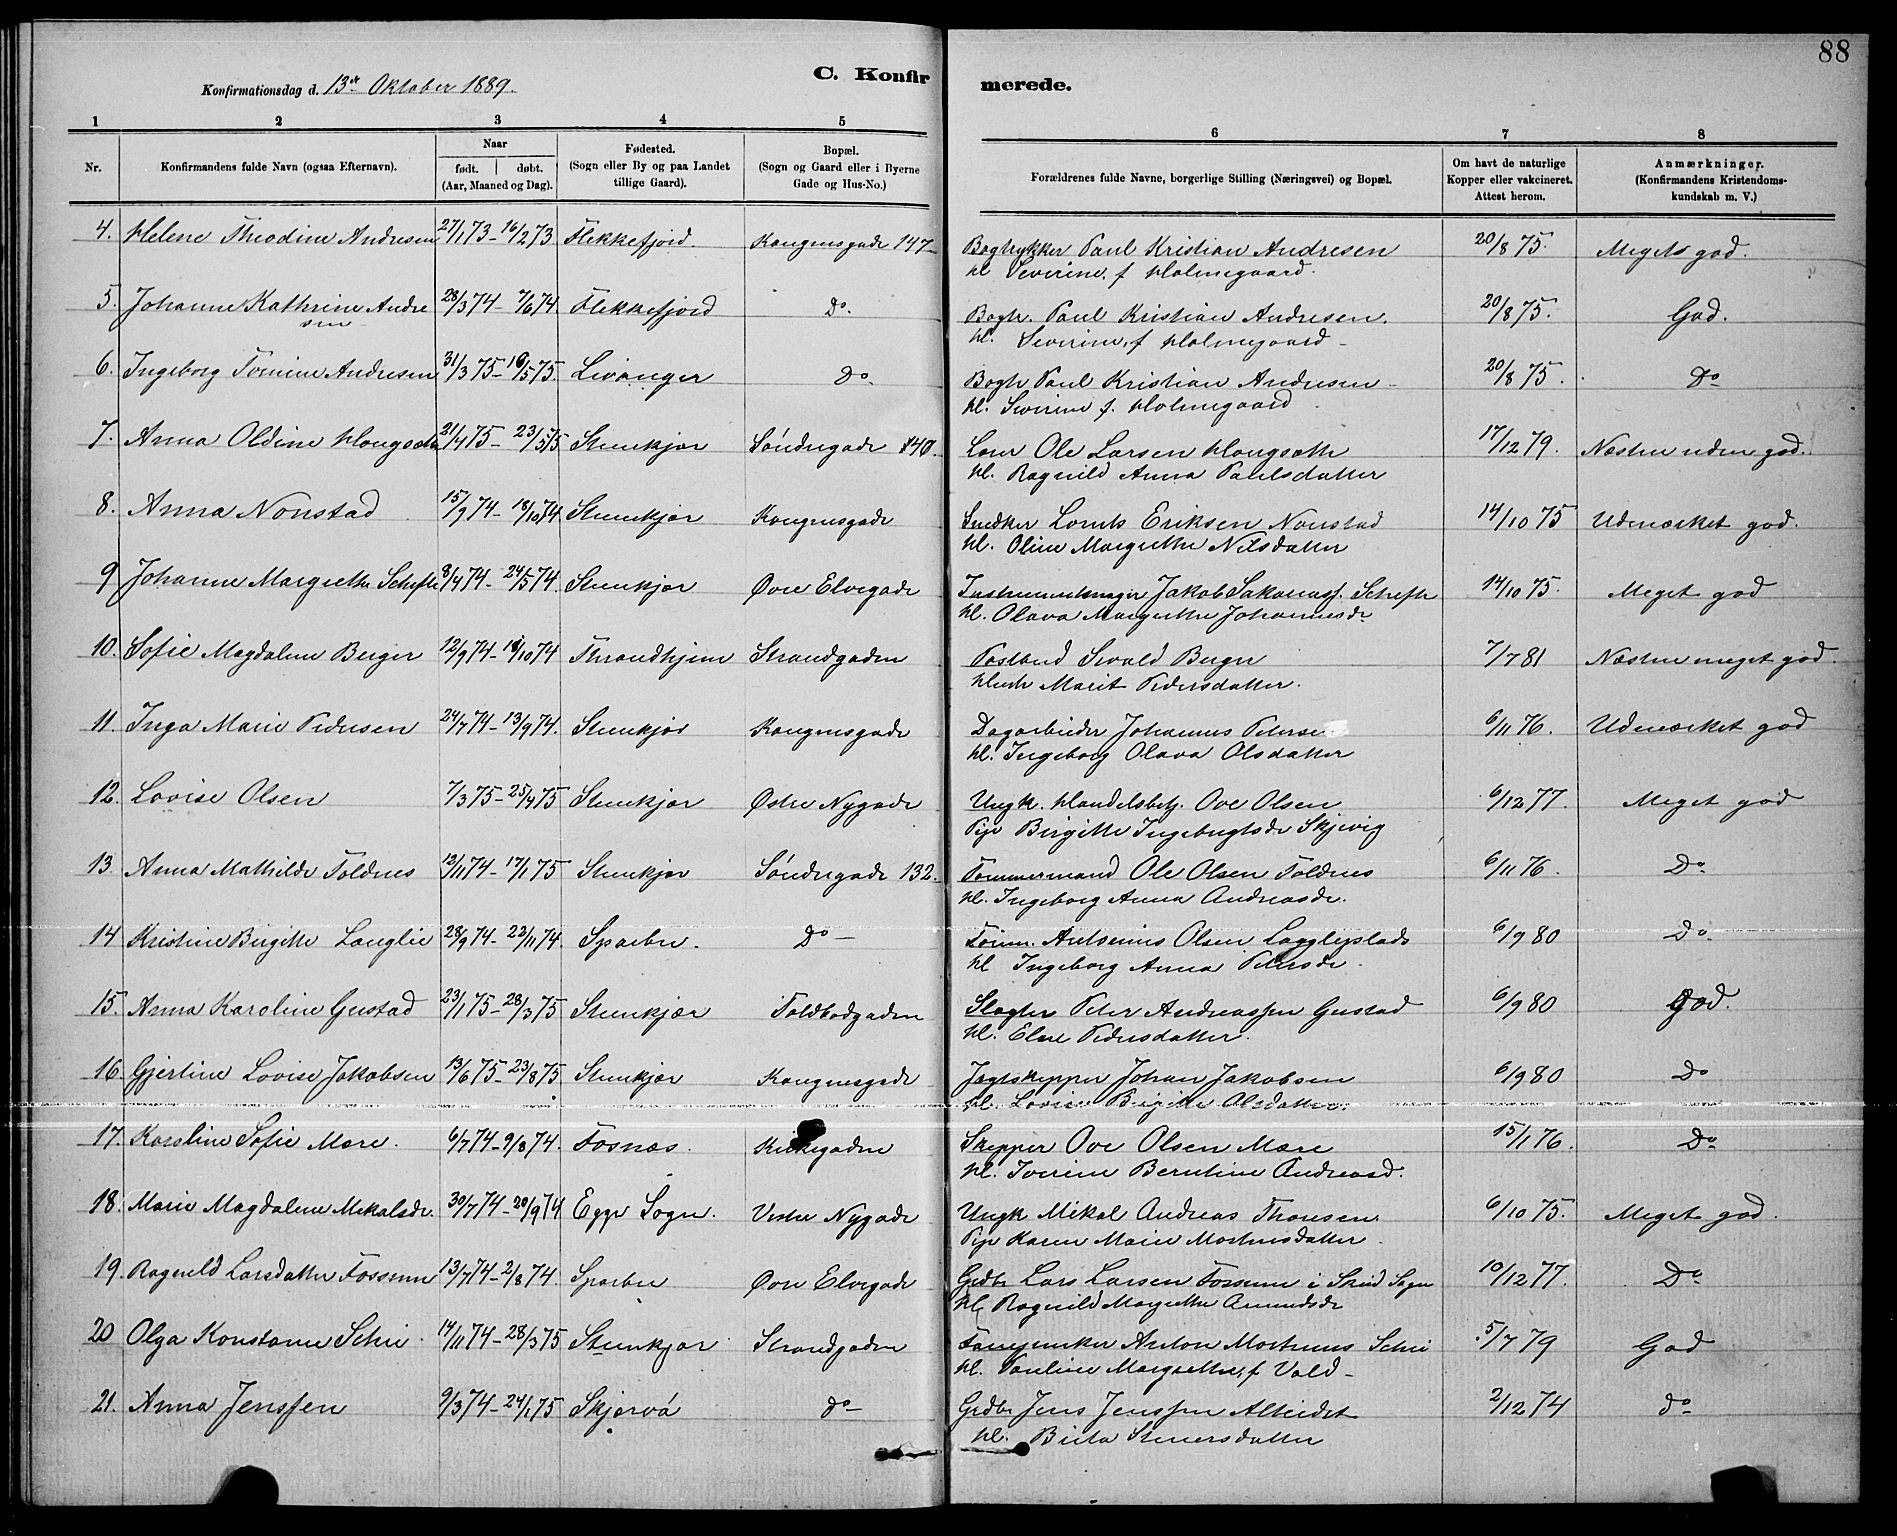 88
Konfirmationsdag d. 13de Oktober 1889.
C. Konfirmerede.
1 2 3 4 5 6 7 8
Nr.
Konfirmandens fulde Navn (ogsaa Efternavn).
Naar
født. døbt.
(Aar, Maaned og Dag).
Fødested.
(Sogn eller By og paa Landet
tillige Gaard).
Bopæl.
(Sogn og Gaard eller i Byerne
Gade og Hus-No.)
Forældrenes fulde Navne, borgerlige Stilling (Næringsvei) og Bopæl.
Om havt de naturlige
Kopper eller vakcineret.
Attest herom.
Anmærkninger.
(Konfirmandens Kristendoms-
kundskab m. V.)
4. Helene Theodine Andresen 27/1 73 - 16/2 73 Flekkefjord. Kongensgade 147 Bogtrykker Paul Kristian Andresen 20/8 75. Meget god.
hl. Severine, f. Holmegaard.
5. Johanne Kathrine Andre 28/3 74 - 7/6 74 Flekkefjord Do. Bogtr. Paul Kristian Andresen. 20/8 75. God.
sen hl. Severine, f. Holmegaard
6. Ingeborg Tomine Andresen 31/3 75 - 16/5 75. Levanger Do Bogtr Paul Kristian Andresen 20/8 75. Do
hl. Severine f. Holmegaard
7. Anna Oldine Hougsæth 21/4 75 - 23/5 75 Stenkjær Søndregade 140. Ole Larsen Hougsæth 17/12 79. Næsten uden god.
hl. Ragnild Anna Paulsdatter
8. Anna Nonstad 15/9 74 - 18/10 74 Stenkjær Kongensgade Snedker Lornts Eriksen Nonstad 14/10 75 Udmærket god.
hl. Oline Margrethe Nilsdatter
9 Johanne Margrethe Schefte 8/4 74 - 24/5 74. Stenkjær Øvre Elvegade Instrumentmager Jakob Sakariass. Schefte 14/10 75. Meget god
hl. Olava Margrethe Johannesdr
10. Sofie Magdalene Berger 12/9 74 - 18/10 74 Throndhjem Strandgaden Postbud Sivald Berger 7/7 81 Næsten meget god.
Hustr Marit Pedersdatter.
11. Inga Marie Pedersen 24/7 74 - 13/9 74. Stenkjær Kongensgade Dagarbeider Johannes Peterse 6/11 76. Udmærket god
hl. Ingeborg Olava Olsdatter
12. Lovise Olsen 7/3 75 - 25/4 75 Stenkjær Østre Nygade Ungk. Handelsbetj. Ove Olsen 6/12 77. Meget god
Pige Birgitte Ingebrigtsdr Skjevig
13. Anna Mathilde Foldnes 12/11 74 - 17/1 75 Stenkjær Søndregade 132. Tømmermand Ole Olsen Foldnes 6/11 76. Do
hl. Ingeborg Anna Andreasdr.
14 Kristine Birgitte Langlie 28/9 74 - 22/11 74. Sparbu. Do Tømm. Antonius Olsen Laggliplads 6/9 80 Do
hl Ingeborg Anna Petersdr.
15. Anna Karoline Gustad 23/1 75 - 28/3 75 Stenkjær Toldbodgaden Slagter Peter Andreassen Gustad 6/9 80 God.
hl. Elen Pedersdatter.
16. Gjertine Lovise Jakobsen 13/6 75 - 23/8 75 Stenkjær Kongensgade Jagtskipper Johan Jakobsen 6/9 80 Do
hl. Lovise Birgitte Olsdatter.
17. Karoline Sofie Mære. 6/7 74 - 9/8 74. Fosnæs. Kirkegaden Skipper Ove Olsen Mære 15/1 76. Do
hl. Iverine Berntine Andreasd.
18. Marie Magdalene Mikalsdr. 30/7 74 - 20/9 74 Egge Sogn. Vestre Nygade Ungk Mikal Andreas Thoresen. 6/10 75. Meget god.
Pige Karen Marie Mortensdatter.
19. Ragnild Larsdatter Fossum 13/7 74 - 2/8 74. Sparbu Øvre Elvegade Grdbr Lars Larsen Fossum i Skei Sogn 10/12 77. Do
hl. Ragnild Margrethe Amundsdr
20 Olga Konstanse Schei 14/11 74 - 28/3 75 Stenkjær Strandgaden Anton Martinus Schei 5/7 79 God
hl. Pauline Margrethe, f. Vold
21. Anna Jenssen 9/3 74 - 24/1 75 Skjervö do Grdbr. Jens Jenssen Alteidet 2/12 74 do
hl. Berta Steuersdatter